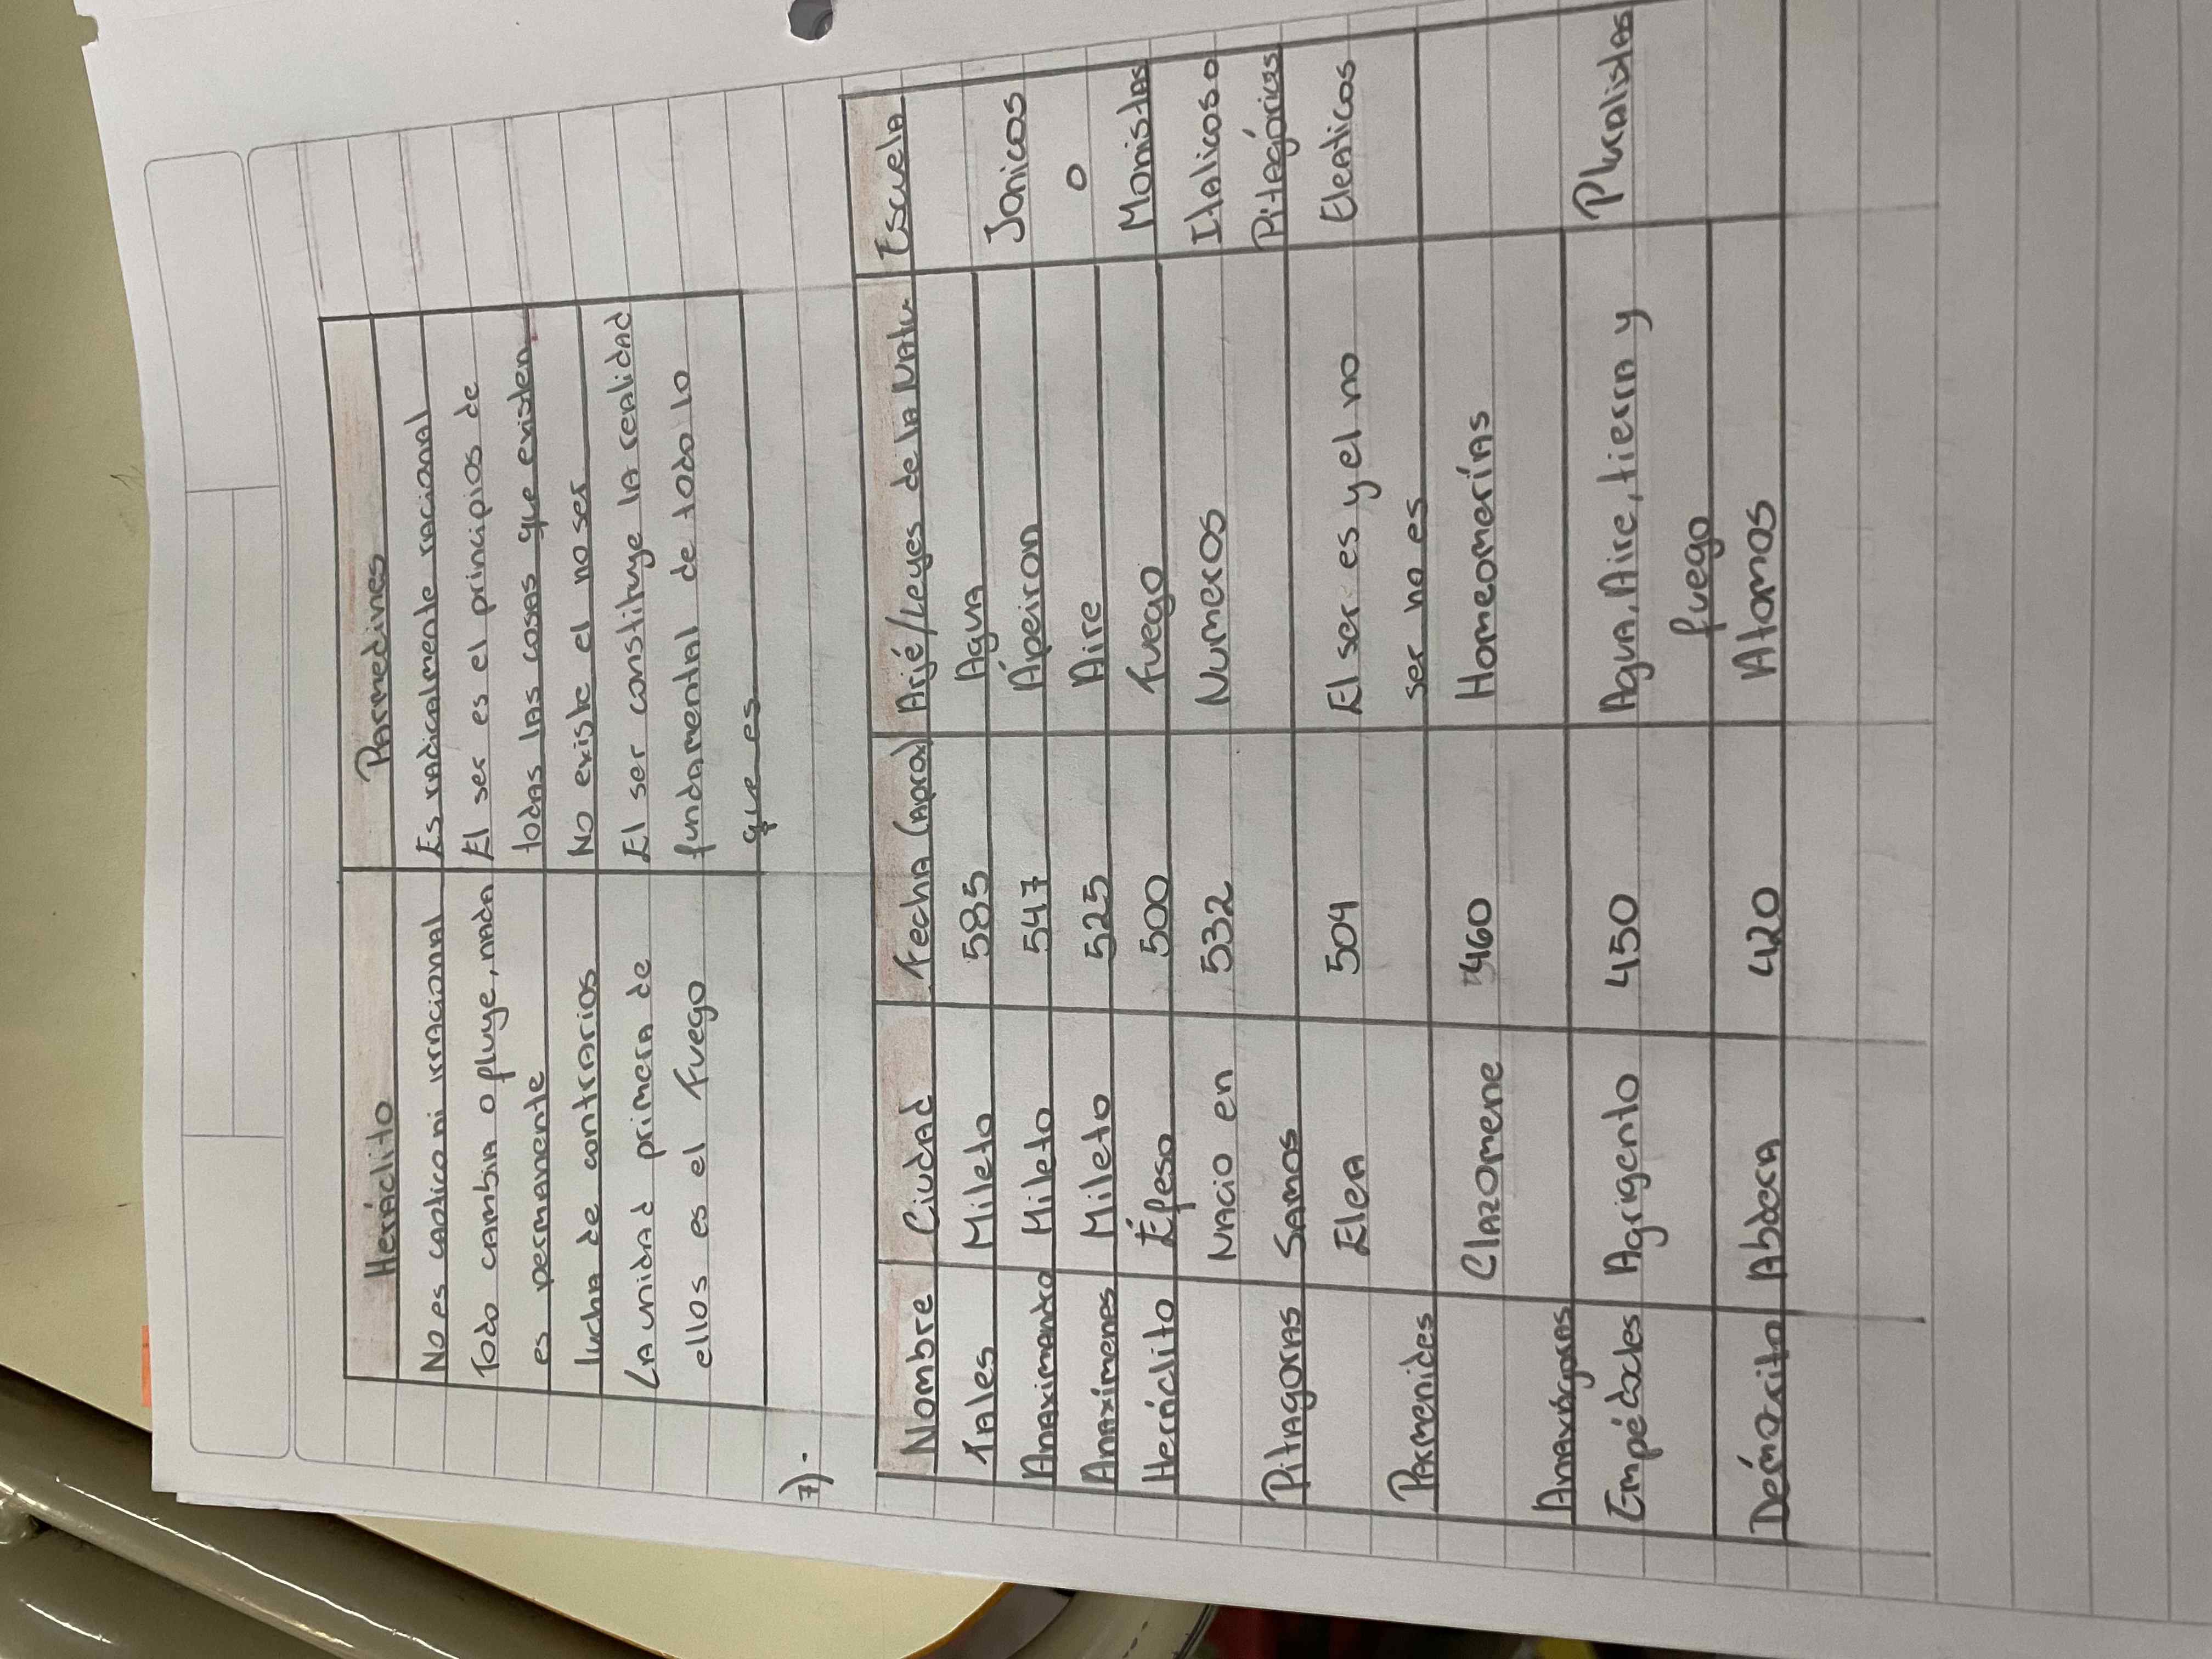 Heráclito Parmedines
No es caotico ni irracional Es radicalmente racional
Todo cambia o fluye, nada El ser es el principios de
es permanente todas las cosas que existen
lucha de contrarios No existe el no ser
La unidad primera de El ser constituye la realidad
ellos es el fuego fundamental de todo lo
que es
7).
Nombre Ciudad Fecha (Aprox) Arjé/Leyes de la Natu. Escuela
Tales Mileto 585 Agua
Anaximandro Mileto 547 Ápeiron Jonicos
Anaxímenes Mileto 525 Aire o
Heráclito Éfeso 500 Fuego Monistas
Nacio en 532 Numeros Italicos o
Pitagoras Samos Pitagóricos
Elea 504 El ser es y el no Eleaticos
Parmenides ser no es
Clazomene 460 Homeomerías
Anaxágoras
Empédocles Agrigento 450 Agua, Aire, tierra y Pluralistas
fuego
Demócrito Abdera 420 Atomos